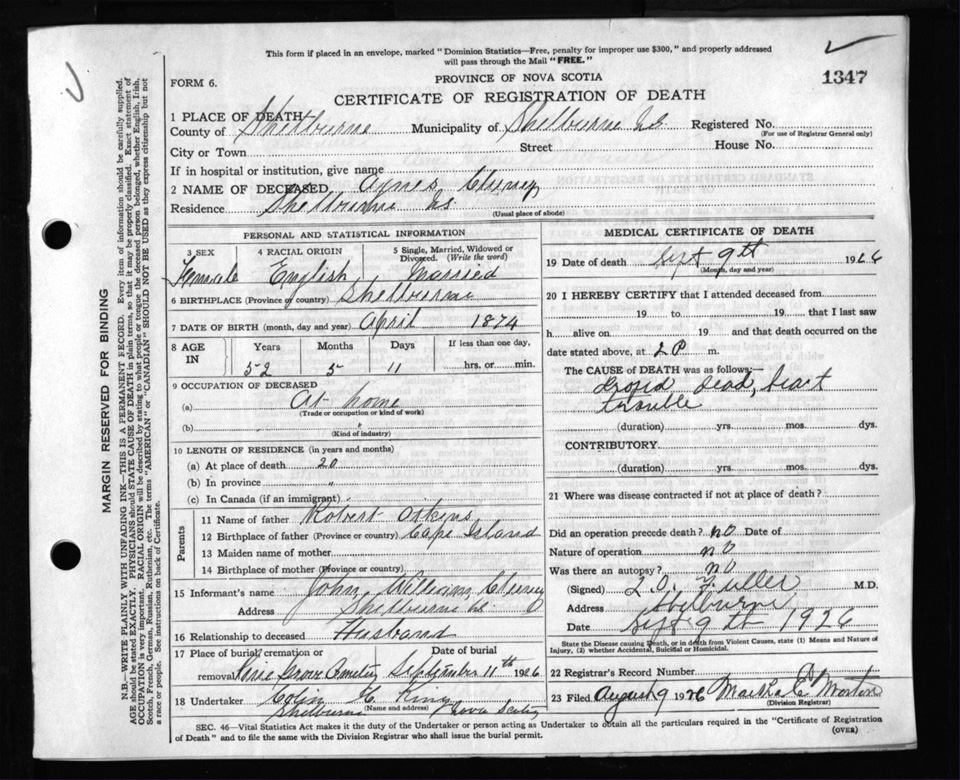 This form if placed in an envelope, marked "Dominion Statistics—Free, penalty for improper use $300," and properly addressed
will pass through the Mail "FREE."
FORM 6.
PROVINCE OF NOVA SCOTIA
1347
CERTIFICATE OF REGISTRATION OF DEATH
1 PLACE OF DEATH—
County of Shelburne Municipality of Shelburne NS Registered No.
(For use of Registrar General only)
City or Town Street House No.
If in hospital or institution, give name
2 NAME OF DECEASED
Residence Shelburne NS
(Usual place of abode)
PERSONAL AND STATISTICAL INFORMATION
3 SEX 4 RACIAL ORIGIN 5 Single, Married, Widowed or Divorced. (Write the word)
Female English Married
6 BIRTHPLACE (Province or country) Shelburne
7 DATE OF BIRTH (month, day and year) April 1874
8 AGE IN Years Months Days If less than one day,
52 5 11 hrs. or min.
9 OCCUPATION OF DECEASED
(a) At home
(Trade or occupation or kind of work)
(b) "
(Kind of industry)
10 LENGTH OF RESIDENCE (in years and months)
(a) At place of death 20
(b) In province "
(c) In Canada (if an immigrant) "
Parents
11 Name of father Robert
12 Birthplace of father (Province or country) Cape Island
13 Maiden name of mother
14 Birthplace of mother (Province or country)
15 Informant's name John William
Address Shelburne NS
16 Relationship to deceased Husband
17 Place of burial, cremation or removal Date of burial
Pine Grove Cemetery September 11th 1926
18 Undertaker Colin King
(Name and address)
Shelburne Nova Scotia
MEDICAL CERTIFICATE OF DEATH
19 Date of death Sept 9th 1926
(Month, day and year)
20 I HEREBY CERTIFY that I attended deceased from
19 to 19 that I last saw
h alive on 19 and that death occurred on the
date stated above, at 2 P m.
The CAUSE of DEATH was as follows:—
droped dead, heart
trouble
(duration) yrs. mos. dys.
CONTRIBUTORY
(duration) yrs. mos. dys.
21 Where was disease contracted if not at place of death?
Did an operation precede death? no Date of
Nature of operation no
Was there an autopsy? no
(Signed) Fuller M.D.
Address Shelburne
Date Sept 9th 1926
State the Disease causing Death, or in death from Violent Causes, state (1) Means and Nature of
Injury, (2) whether Accidental, Suicidal or Homicidal.
22 Registrar's Record Number
23 Filed August 9 1926 Morton
(Division Registrar)
SEC. 46—Vital Statistics Act makes it the duty of the Undertaker or person acting as Undertaker to obtain all the particulars required in the "Certificate of Registration
of Death" and to file the same with the Division Registrar who shall issue the burial permit. (OVER)
MARGIN RESERVED FOR BINDING
N.B.—WRITE PLAINLY WITH UNFADING INK—THIS IS A PERMANENT RECORD. Every item of information should be carefully supplied.
AGE should be stated EXACTLY. PHYSICIANS should STATE CAUSE OF DEATH in plain terms, so that it may be properly classified. Exact statement of
OCCUPATION is very important. RACIAL ORIGIN will be described by stating to what people or tongue the deceased person belonged, whether English, Irish,
Scotch, French, German, Russian, Ruthenian, etc. The terms "AMERICAN" or "CANADIAN" SHOULD NOT BE USED as they express citizenship but not
a race or people. See instructions on back of Certificate.